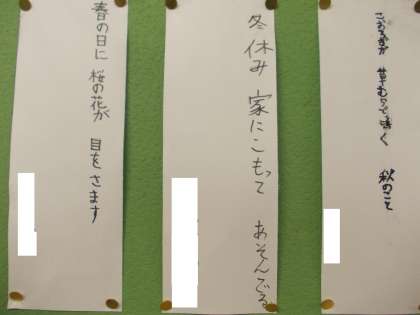 こおろぎが 草むらで鳴く 秋のこと
冬休み 家にこもって あそんでる
春の日に 桜の花が 目をさます